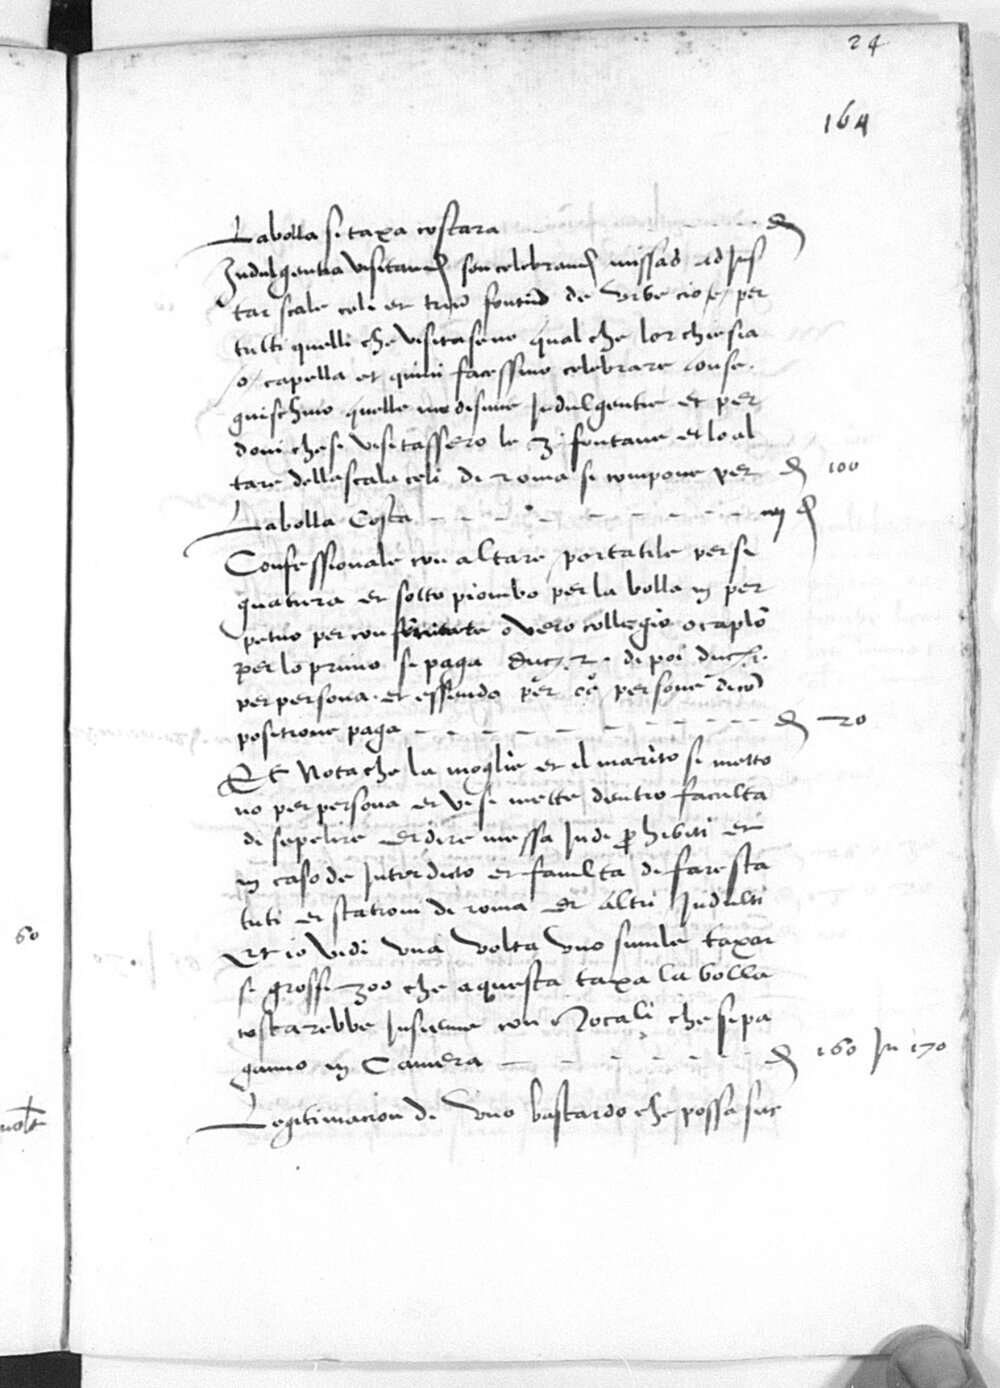 24
164
La bolla si taxa costara - - - - - d
Indulgentia visitand seu celebrand missas ad Ins
tar scale celi et trium fontium de urbe cio /e/ per
tutti quelli che visitaseno qualche lor chiesia
/o/ capella et quini facessino celebrare conse.
guischino quelle medisime Indulgentie et per
doni che si visitassero le 3 fontane et lo al
tare della scala celi di roma si compone per d 100
La bolla Costa - - - - - - - d
Confessionale con altare portatile per si
gnatura et sotto piombo per la bolla in per
petuo per con o vero collegio o caplo
per lo primo si paga duc. 2. di poi duc.
per persona. et essendo per persone di co
positione paga - - - - - - - d 20
Et Nota che la moglie et il marito si metto
no per persona et vi si mette dentro faculta
di sepelire et dire messa Indi prohibiti et
in caso de Interdicto et faculta di fare sta
tuti et stationi di roma et altri Indulti
Et io vidi una volta uno simile taxar
si grossi 300 che a questa taxa la bolla
costarebbe Insieme con Iocali che si pa
ganno in Camera - - - - - - d 160 In 170
Legitimacion di uno bastardo che possa suc
60